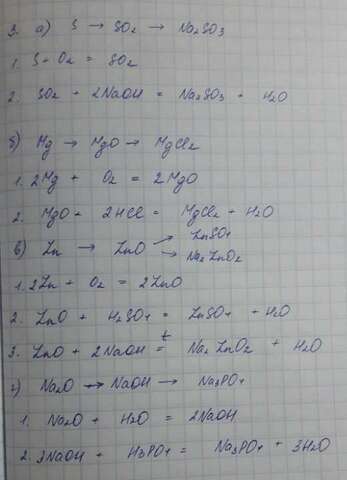 3. а) S → SO2 → Na2SO3
1. S + O2 = SO2
2. SO2 + 2NaOH = Na2SO3 + H2O
б) Mg → MgO → MgCl2
1. 2Mg + O2 = 2MgO
2. MgO + 2HCl = MgCl2 + H2O
в) Zn → ZnO → ZnSO4
→ Na2ZnO2
1. 2Zn + O2 = 2ZnO
2. ZnO + H2SO4 = ZnSO4 + H2O
3. ZnO + 2NaOH =t Na2ZnO2 + H2O
г) Na2O → NaOH → Na3PO4
1. Na2O + H2O = 2NaOH
2. 3NaOH + H3PO4 = Na3PO4 + 3H2O